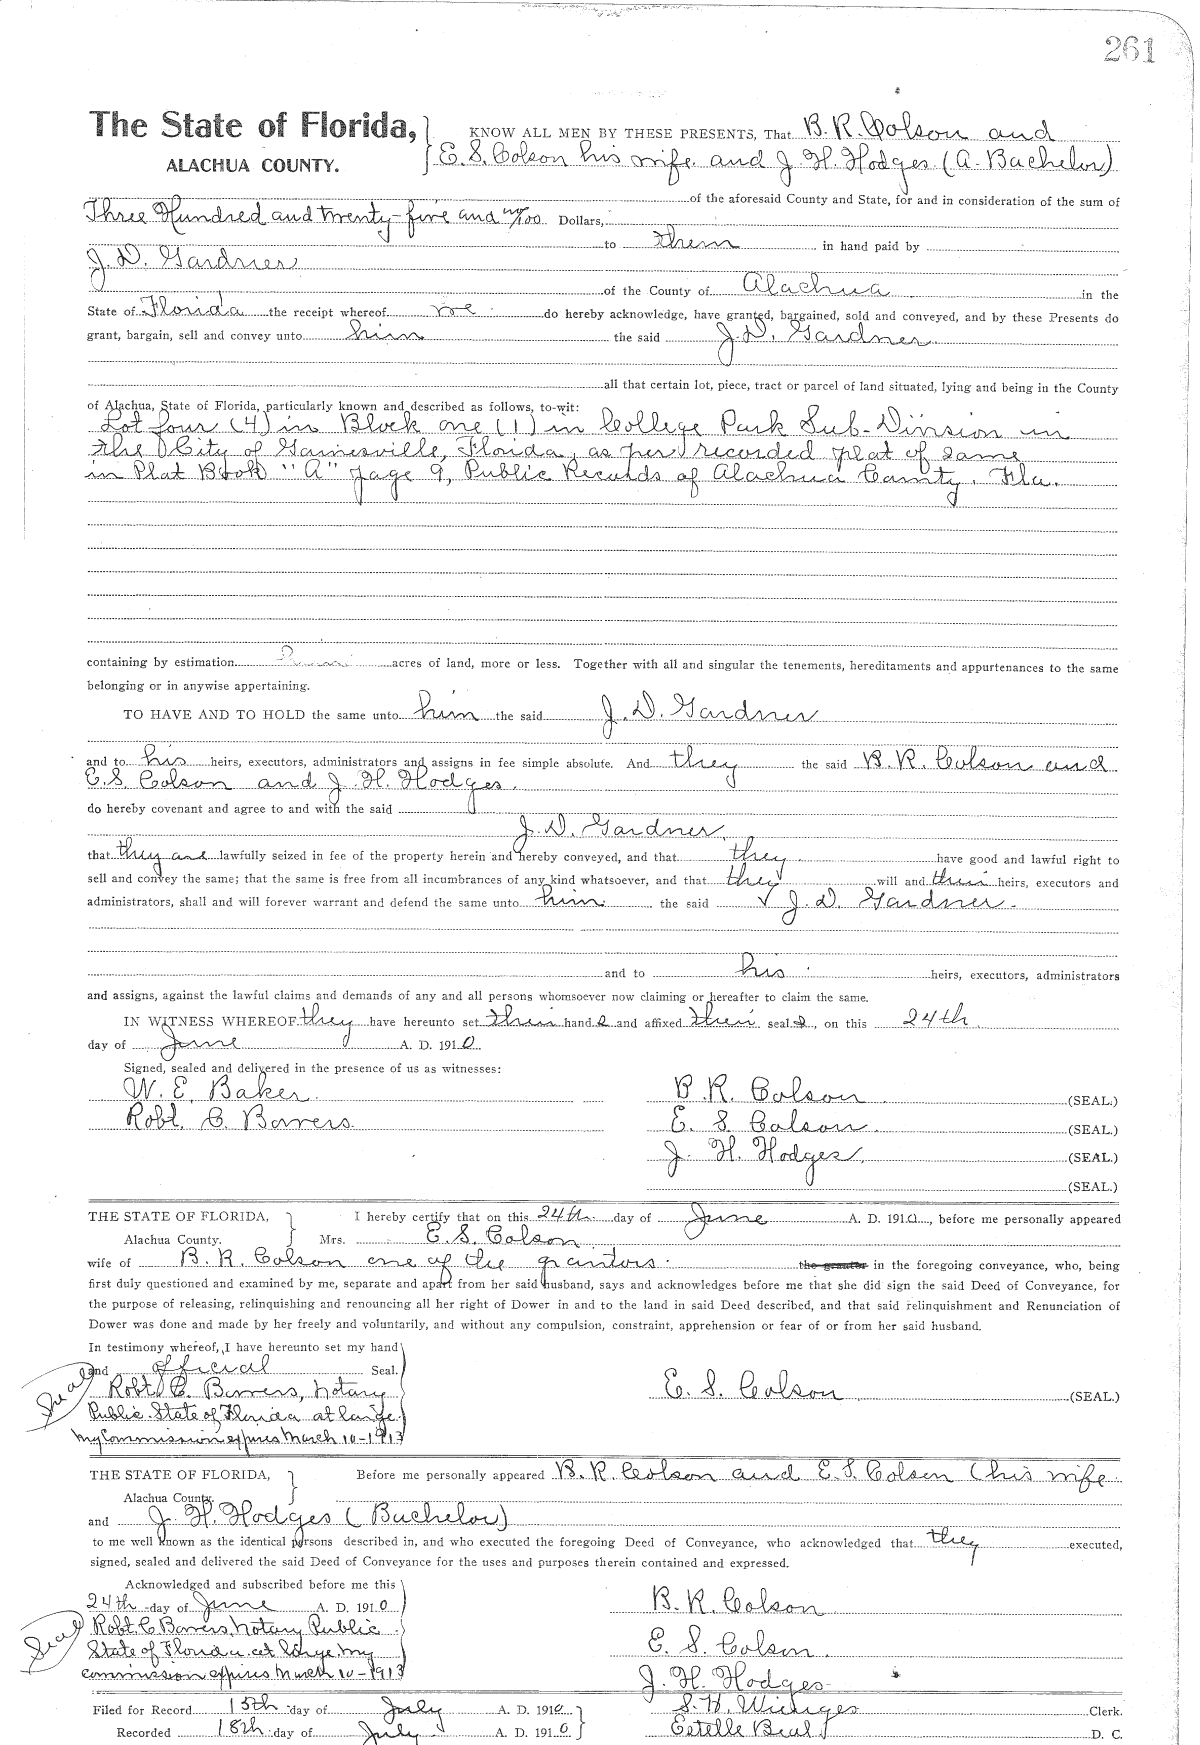 261
The State of Florida,
ALACHUA COUNTY.
KNOW ALL MEN BY THESE PRESENTS, That B. R. Colson and
E. S. Colson his wife and J. H. Hodges (A. Bachelor)
of the aforesaid County and State, for and in consideration of the sum of
Three Hundred and twenty-five and no/100 Dollars,
to them in hand paid by
J. D. Gardner
of the County of Alachua in the
State of Florida the receipt whereof we do hereby acknowledge, have granted, bargained, sold and conveyed, and by these Presents do
grant, bargain, sell and convey unto him the said J. D. Gardner
all that certain lot, piece, tract or parcel of land situated, lying and being in the County
of Alachua, State of Florida, particularly known and described as follows, to-wit:
Lot four (4) in Block one (1) in College Park Sub-Division in
the City of Gainesville, Florida, as per recorded plat of same
in Plat Book "A" page 9, Public Records of Alachua County, Fla.
containing by estimation acres of land, more or less. Together with all and singular the tenements, hereditaments and appurtenances to the same
belonging or in anywise appertaining.
TO HAVE AND TO HOLD the same unto him the said J. D. Gardner
and to his heirs, executors, administrators and assigns in fee simple absolute. And they the said B. R. Colson and
E. S. Colson and J. H. Hodges.
do hereby covenant and agree to and with the said
J. D. Gardner,
that they are lawfully seized in fee of the property herein and hereby conveyed, and that they have good and lawful right to
sell and convey the same; that the same is free from all incumbrances of any kind whatsoever, and that they will and their heirs, executors and
administrators, shall and will forever warrant and defend the same unto him the said J. D. Gardner.
and to his heirs, executors, administrators
and assigns, against the lawful claims and demands of any and all persons whomsoever now claiming or hereafter to claim the same.
IN WITNESS WHEREOF they have hereunto set their hands and affixed their seals, on this 24th
day of June A. D. 1910.
Signed, sealed and delivered in the presence of us as witnesses:
W. E. Baker. B. R. Colson (SEAL.)
Robt. C. Bowers. E. S. Colson. (SEAL.)
J. H. Hodges. (SEAL.)
(SEAL.)
THE STATE OF FLORIDA, I hereby certify that on this 24th day of June A. D. 1910, before me personally appeared
Alachua County. Mrs. E. S. Colson
wife of B. R. Colson one of the grantors. the grantor in the foregoing conveyance, who, being
first duly questioned and examined by me, separate and apart from her said husband, says and acknowledges before me that she did sign the said Deed of Conveyance, for
the purpose of releasing, relinquishing and renouncing all her right of Dower in and to the land in said Deed described, and that said relinquishment and Renunciation of
Dower was done and made by her freely and voluntarily, and without any compulsion, constraint, apprehension or fear of or from her said husband.
In testimony whereof, I have hereunto set my hand
and official Seal.
Seal
Robt. C. Bowers, Notary E. S. Colson (SEAL.)
Public. State of Florida at large.
My Commission expires March 10-1913
THE STATE OF FLORIDA, Before me personally appeared B. R. Colson and E. S. Colson (his wife
Alachua County.
and J. H. Hodges (Bachelor)
to me well known as the identical persons described in, and who executed the foregoing Deed of Conveyance, who acknowledged that they executed,
signed, sealed and delivered the said Deed of Conveyance for the uses and purposes therein contained and expressed.
Acknowledged and subscribed before me this
24th day of June A. D. 1910 B. R. Colson
Seal
Robt. C. Bowers, Notary Public
State of Florida at large, my E. S. Colson.
commission expires March 10-1913 J. H. Hodges
Filed for Record 15th day of July A. D. 1910. S. H. Wienges Clerk.
Recorded 18th day of July A. D. 1910 Estelle Beal D. C.